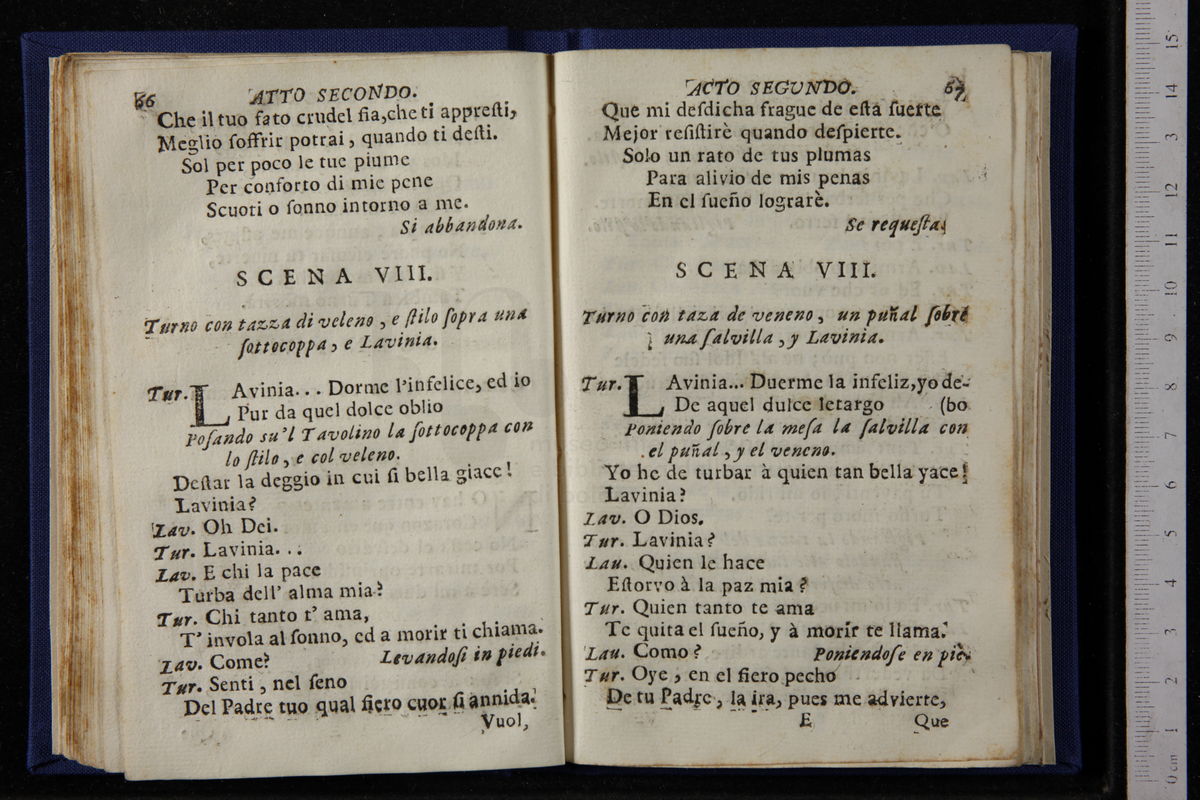 66 ATTO SECONDO.
Che il tuo fato crudel ſia,che ti appreſti,
Meglio ſoffrir potrai, quando ti deſti.
Sol per poco le tue piume
Per conforto di mie pene
Scuoti o ſonno intorno a me.
Si abbandona.
SCENA VIII.
Turno con tazza di veleno, e ſtilo ſopra una
ſottocoppa, e Lavinia.
Tur. LAvinia... Dorme l'infelice, ed io
Pur da quel dolce oblio
Poſando su'l Tavolino la ſottocoppa con
lo ſtilo, e col veleno.
Deſtar la deggio in cui ſi bella giace!
Lavinia?
Lav. Oh Dei.
Tur. Lavinia...
Lav. E chi la pace
Turba dell' alma mia?
Tur. Chi tanto t' ama,
T' invola al ſonno, ed a morir ti chiama.
Lav. Come? Levandoſi in piedi.
Tur. Senti, nel ſeno
Del Padre tuo qual fiero cuor ſi annida.
Vuol,
ACTO SEGVNDO. 67
Que mi deſdicha frague de eſta ſuerte
Mejor reſiſtirè quando deſpierte.
Solo un rato de tus plumas
Para alivio de mis penas
En el ſueño lograrè.
Se requeſta.
SCENA VIII.
Turno con taza de veneno, un puñal ſobre
una ſalvilla, y Lavinia.
Tur. LAvinia... Duerme la infeliz,yo de-
De aquel dulce letargo (bo
Poniendo ſobre la meſa la ſalvilla con
el puñal, y el veneno.
Yo he de turbar à quien tan bella yace!
Lavinia?
Lav. O Dios.
Tur. Lavinia?
Lau. Quien le hace
Eſtorvo à la paz mia?
Tur. Quien tanto te ama
Te quita el ſueño, y à morir te llama.
Lau. Como? Poniendoſe en piè.
Tur. Oye, en el fiero pecho
De tu Padre, la ira, pues me advierte,
E Que
15
14
13
12
11
10
9
8
7
6
5
4
3
2
1
0 cm